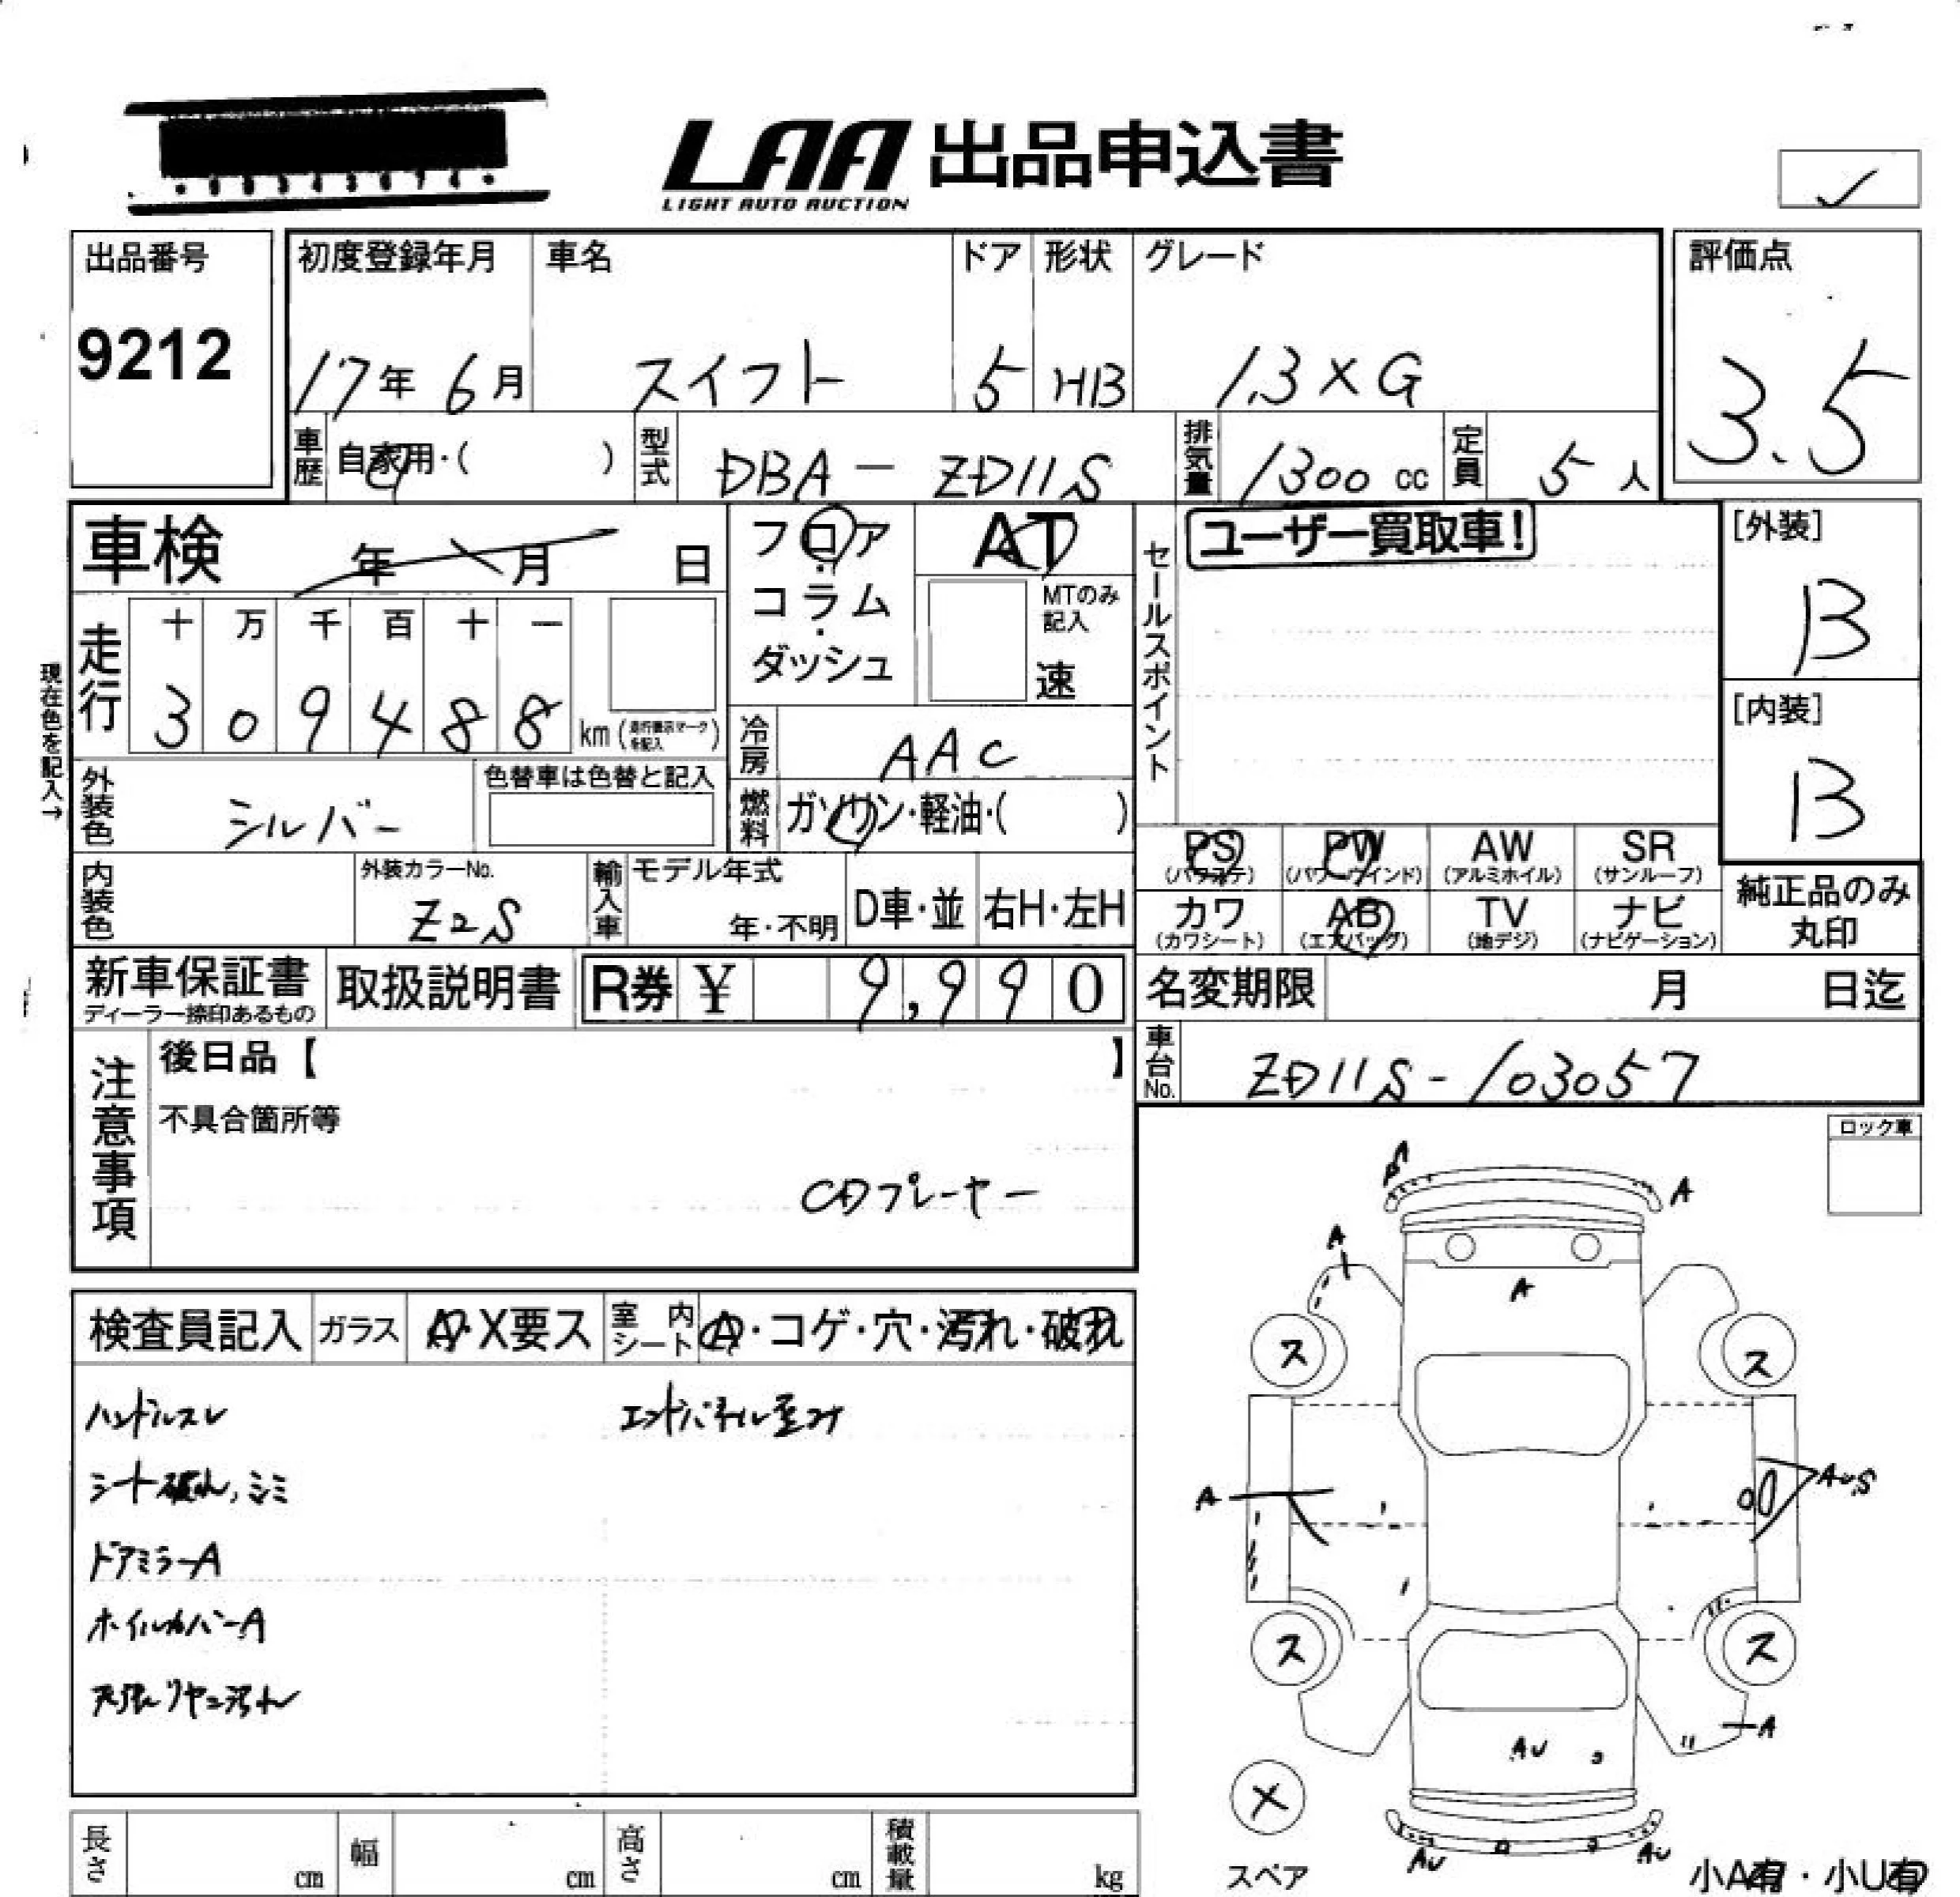 LAA 出品申込書
LIGHT AUTO AUCTION
出品番号
9212
初度登録年月
17年 6月
車名
スイフト
ドア
5
形状
HB
グレード
1.3 X G
評価点
3.5
車歴
自家用・( )
型式
DBA - ZD11S
排気量
1300 cc
定員
5 人
車検
年 月 日
フロア
・
コラム
・
ダッシュ
AT
MTのみ
記入
速
セールスポイント
ユーザー買取車!
[外装]
B
[内装]
B
現在色を記入→
走行
十 万 千 百 十 一
3 0 9 4 8 8
km (走行表示マークを記入)
冷房
AAC
外装色
シルバー
色替車は色替と記入
燃料
ガソリン・軽油・( )
PS
(パワステ)
PW
(パワーウインド)
AW
(アルミホイル)
SR
(サンルーフ)
カワ
(カワシート)
AB
(エアバッグ)
TV
(地デジ)
ナビ
(ナビゲーション)
純正品のみ
丸印
内装色
外装カラーNo.
Z2S
輸入車
モデル年式
年・不明
D車・並
右H・左H
新車保証書
ディーラー捺印あるもの
取扱説明書
R券 ¥ 9,990
名変期限
月 日迄
車台No.
ZD11S-103057
注意事項
後日品【 】
不具合箇所等
CDプレーヤー
ロック車
検査員記入
ガラス
A・X要ス
室内シート
A・コゲ・穴・汚れ・破れ
ハンドルスレ
エンドパネル歪み
シート破れ,シミ
ドアミラーA
ホイルカバーA
天張リヤニ汚れ
S
A
A
A
ス
ス
A
AUS
ス
ス
A
AU
X
スペア
AU
AU
小A有・小U有
長さ
cm
幅
cm
高さ
cm
積載量
kg